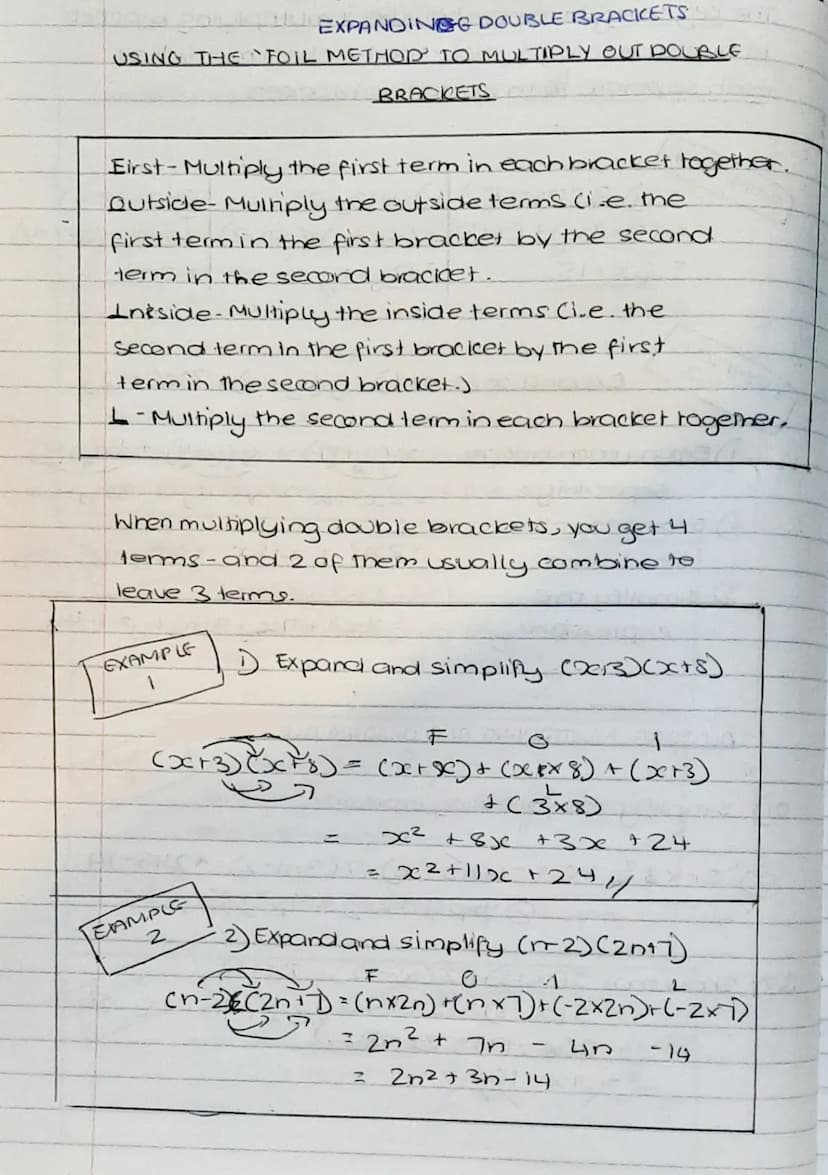 EXPANDING DOUBLE BRACKETS
USING THE 'FOIL METHOD' TO MULTIPLY OUT DOUBLE
BRACKETS
First - Multiply the first term in each bracket together.
Outside - Multiply the outside terms (i.e. the
first term in the first bracket by the second
term in the second bracket.
Inside - Multiply the inside terms (i.e. the
second term in the first bracket by the first
term in the second bracket.)
L - Multiply the second term in each bracket together.
When multiplying double brackets, you get 4
terms - and 2 of them usually combine to
leave 3 terms.
EXAMPLE
1
1) Expand and simplify (x+3)(x+8)
F O I
(x+3)(x+8) = (x+x)+(x×8)+(x+3)
L
+(3×8)
= x² + 8x + 3x + 24
= x²+11x+24//
EXAMPLE
2
2) Expand and simplify (n-2)(2n+7)
F O I L
(n-2)(2n+7) = (n×2n)+(n×7)+(-2×2n)+(-2×7)
= 2n² + 7n - 4n -14
= 2n2+3n-14